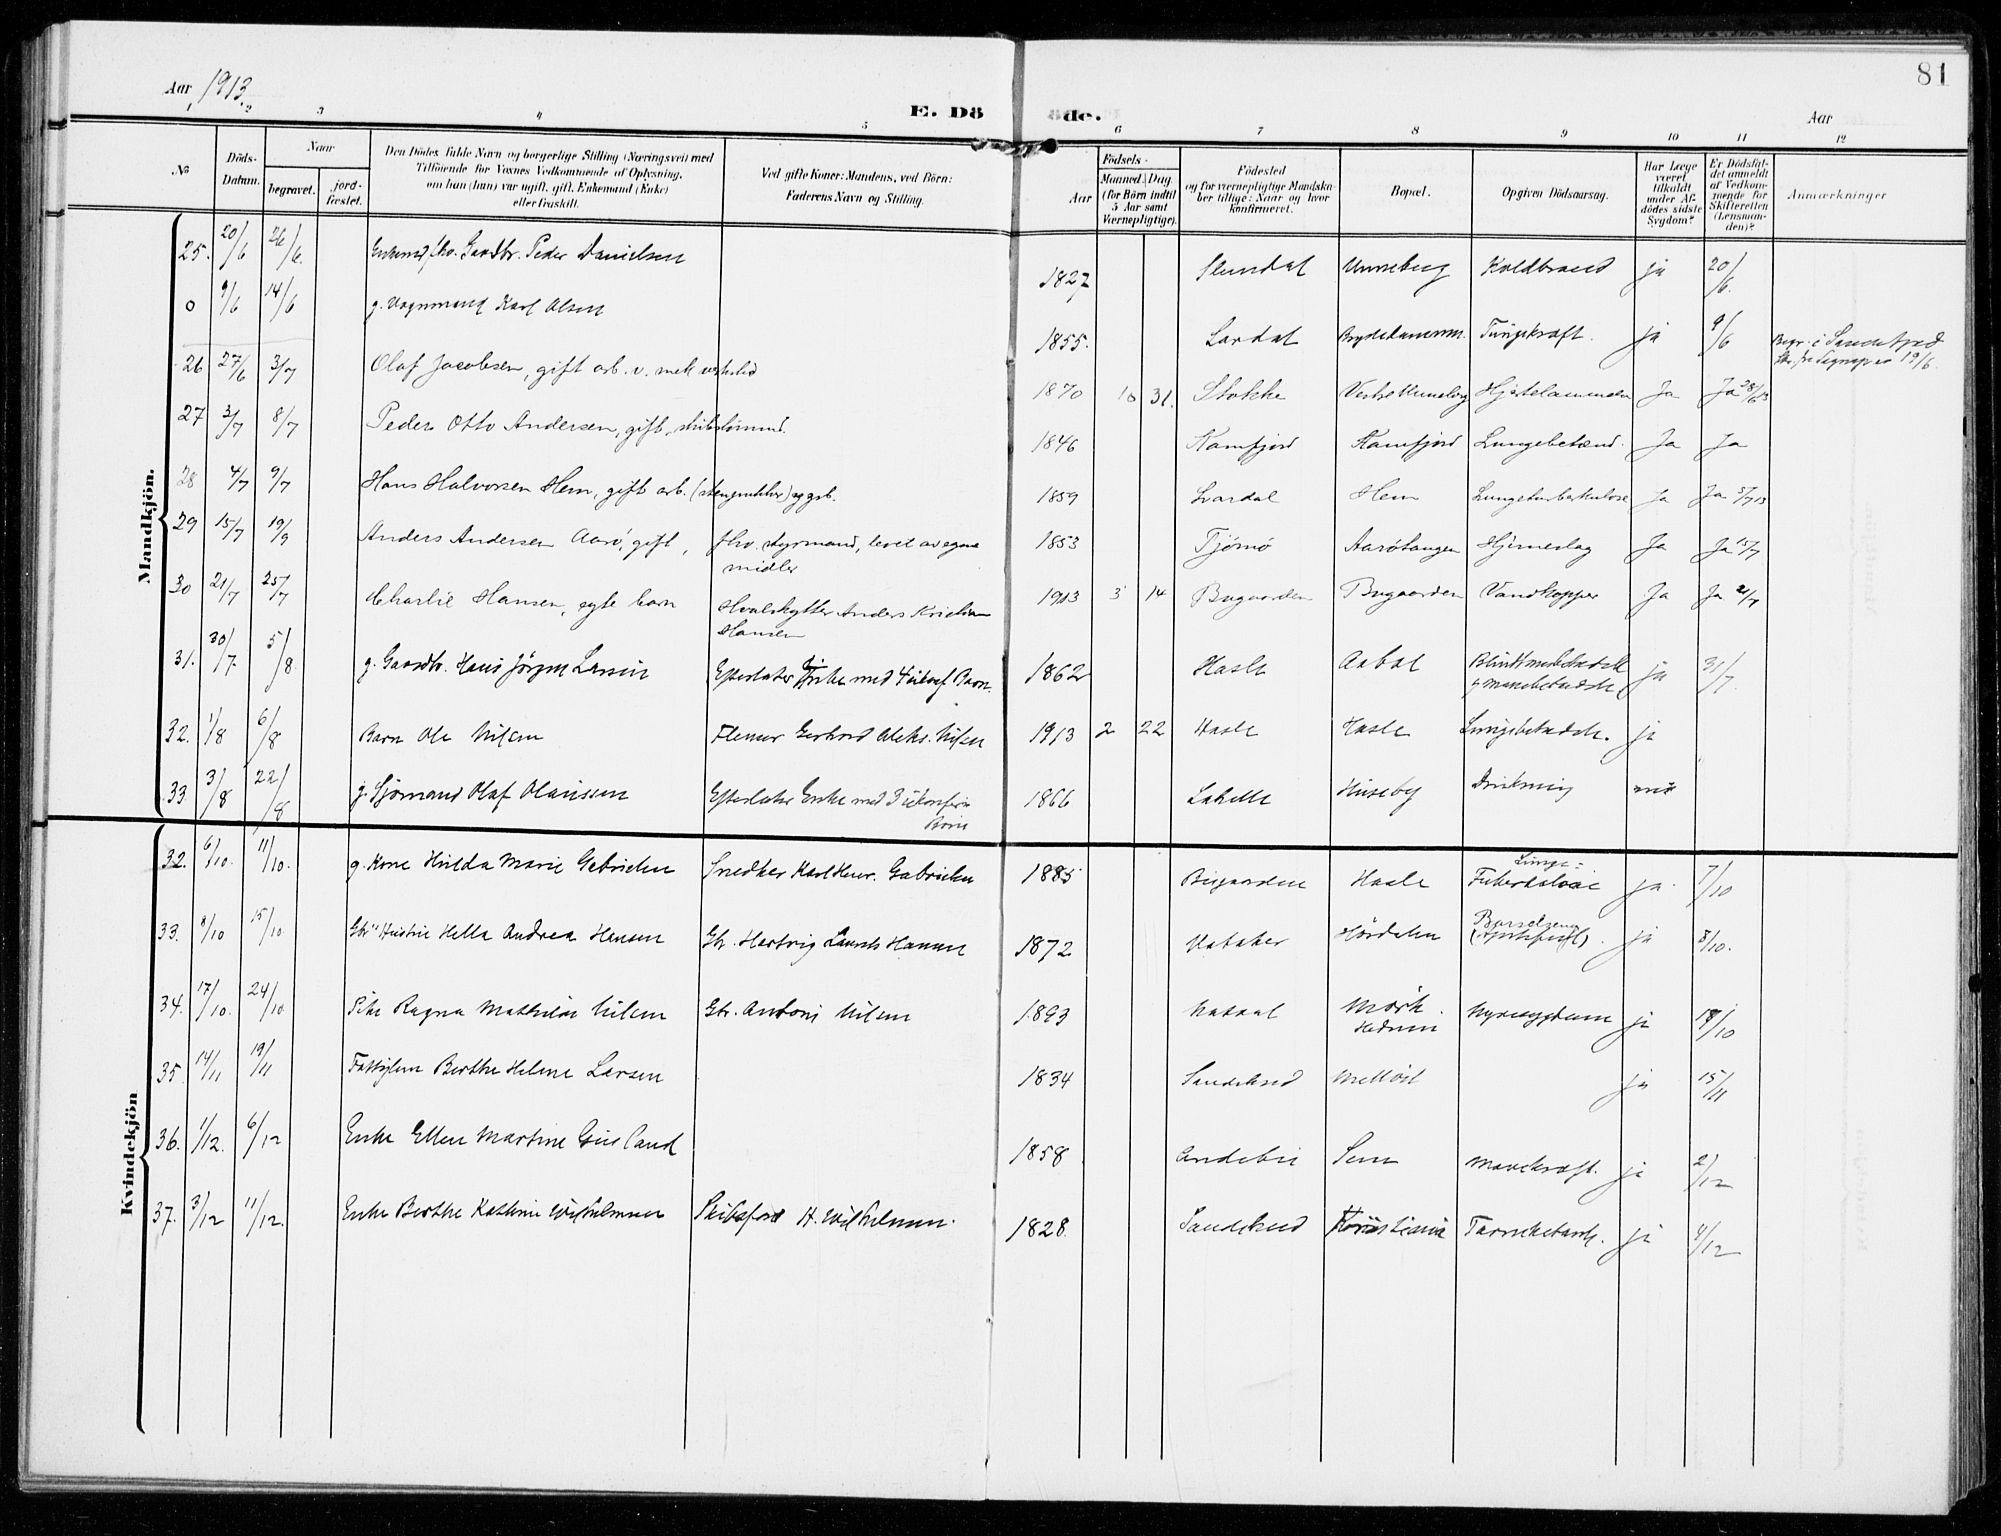 81
Aar 1913.
E. Döde.
Aar
1 2 3 4 5 6 7 8 9 10 11 12
No
Döds-Datum.
Naar
begravet.
jord-fæstet.
Den Dödes fulde Navn og borgerlige Stilling (Næringsvei) med
Tilföiende for Voxnes Vedkommende af Oplysning,
om han (hun) var ugift, gift, Enkemand (Enke)
eller fraskilt.
Ved gifte Koner: Mandens, ved Börn:
Faderens Navn og Stilling.
Födsels-
Aar
Maaned. Dag.
(for Börn indtil
5 Aar samt
Værnepligtige).
Födested
og for værnepligtige Mandska-
ber tillige: Naar og hvor
konfirmeret.
Bopæl.
Opgiven Dödsaarsag.
Har Læge
været
tilkaldt
under Af-
dödes sidste
Sygdom?
Er Dödsfal-
det anmeldt
af Vedkom-
mende for
Skifteretten
(Lensman-
den)?
Anmærkninger
Mandkjön.
25. 20/6 26/6. Enkemd. fhv. Gaardbr. Peder Danielsen 1827 Unneberg Koldbrand ja 20/6.
0 9/6 14/6 g. Vognmand Karl Olsen 1855. Lardal Tungekræft. ja 9/6 Begr. i Sandefjord
19/6.
26 27/6 3/7 Olaf Jacobsen, gift arb. v. mek verksted 1870 10 31. Stokke Vestre Unneberg Hjertelammelse Ja Ja 28/6 13
27 3/7 8/7 Peder Otto Andersen, gift, skibstömmd. 1846 Kamfjord Kamfjord Lungebetænd. Ja Ja
28 4/7 9/7 Hans Halvorsen Hem, gift arb. 1859 Lardal Hem Lungetuberkulose Ja Ja 5/7 13
29 15/7 19/9 Anders Andersen Aarö, gift, fhv. styrmand, levet av egne
midler 1853 Tjömö Aarötangen Hjerneslag Ja Ja 15/7
30 21/7 25/7 Charlie Hansen, egte barn Hvalskytter Anders Kristian
Hansen 1913 3 14 Bugaarden Bugaarden Vandkopper Ja Ja 21/7
31. 30/7. 5/8. g. Gaardbr. Hans Jörgen Larsen Efterlater Enke med 4 ukof Barn. 1862 Hasle Blindtarmbetændelse
ja 31/7.
32. 1/8 6/8 Barn Ole Nilsen Gerhard Aleks. Nilsen 1913 2 22 Hasle Hasle Lungebetændelse. ja
33 3/8 22/8 g. Sjömand Olaf Olaussen Efterlater Enke med 3 ukonfirm
Börn 1866 Huseby Drukning nei
Kvindekjön
32. 6/10. 11/10. g. Kone Hulda Marie Gabrielsen Snedker Karl Henr. Gabrielsen 1885 Bugaarden Hasle Lunge-
Tuberkulose ja. 7/10
33. 8/10 15/10 Gbr Hustru Andrea Hansen Gbr. Hartvig Hansen 1872. Vataker Hördalen Barselseng
ja 8/10.
34. 17/10. 24/10. Pike Ragna Mathilde Nilsen Gbr. Antoni Nilsen 1893 Mörk.
Hedrum Nyresygdom ja 18/10
35 14/11 19/11 Fattiglem Berthe Helene Larsen 1834 Sandeherred ja 15/11
36. 1/12. 6/12 Enke Ellen Martine Gusland 1858 Andebu Sem Mavekræft. ja 2/12
37. 3/12 11/12. Enke Berthe Kathrine Wilhelmsen Skibsförer H. Wilhelmsen. 1828. Sandeherred Kristiania ja 4/12